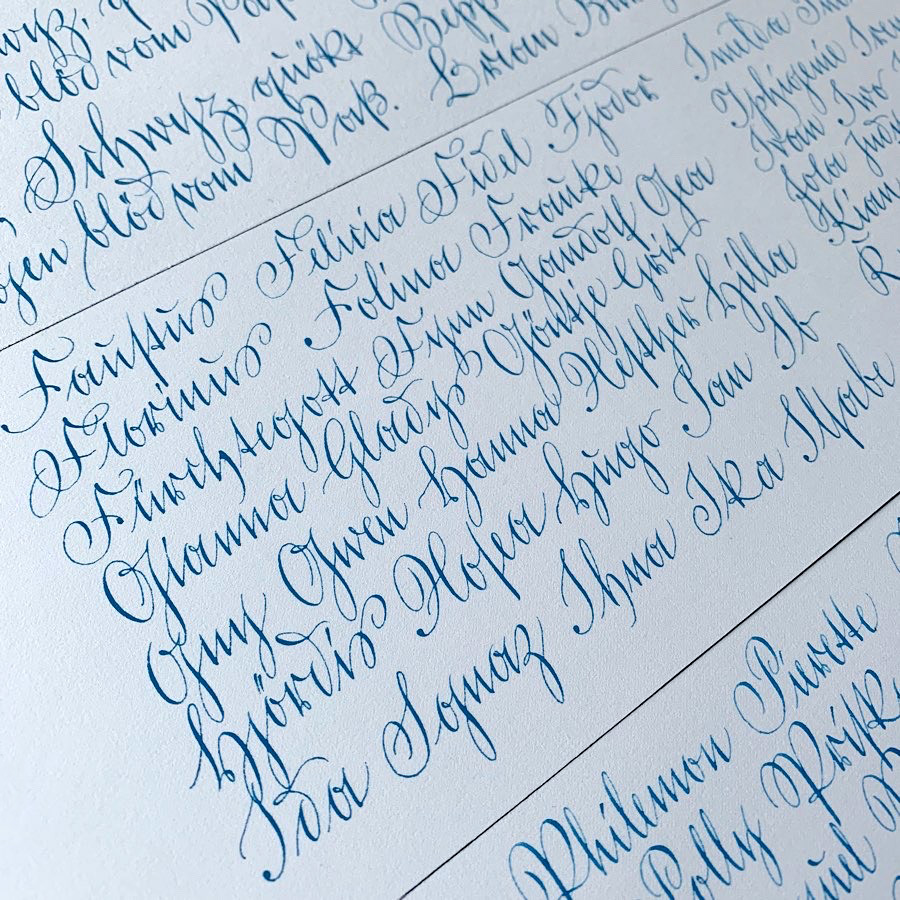 blöd vom
Schwyz, quökt Bepp
blöd vom Pork. Brian
Faustus Felicia Fidel Fjodor
Florinus Folina Frauke
Fürchtegott Fynn Gandolf Gea
Gianna Gladys Göntje Grit
Guy Gwen Hanna Hesther Hilla
Hjördis Hosea Hugo Ian Ib
Ida Ignaz Ilka
Imelda
Iphigenie
Ivan Ivo
Jola
Kian
Philemon Pierette
Polly